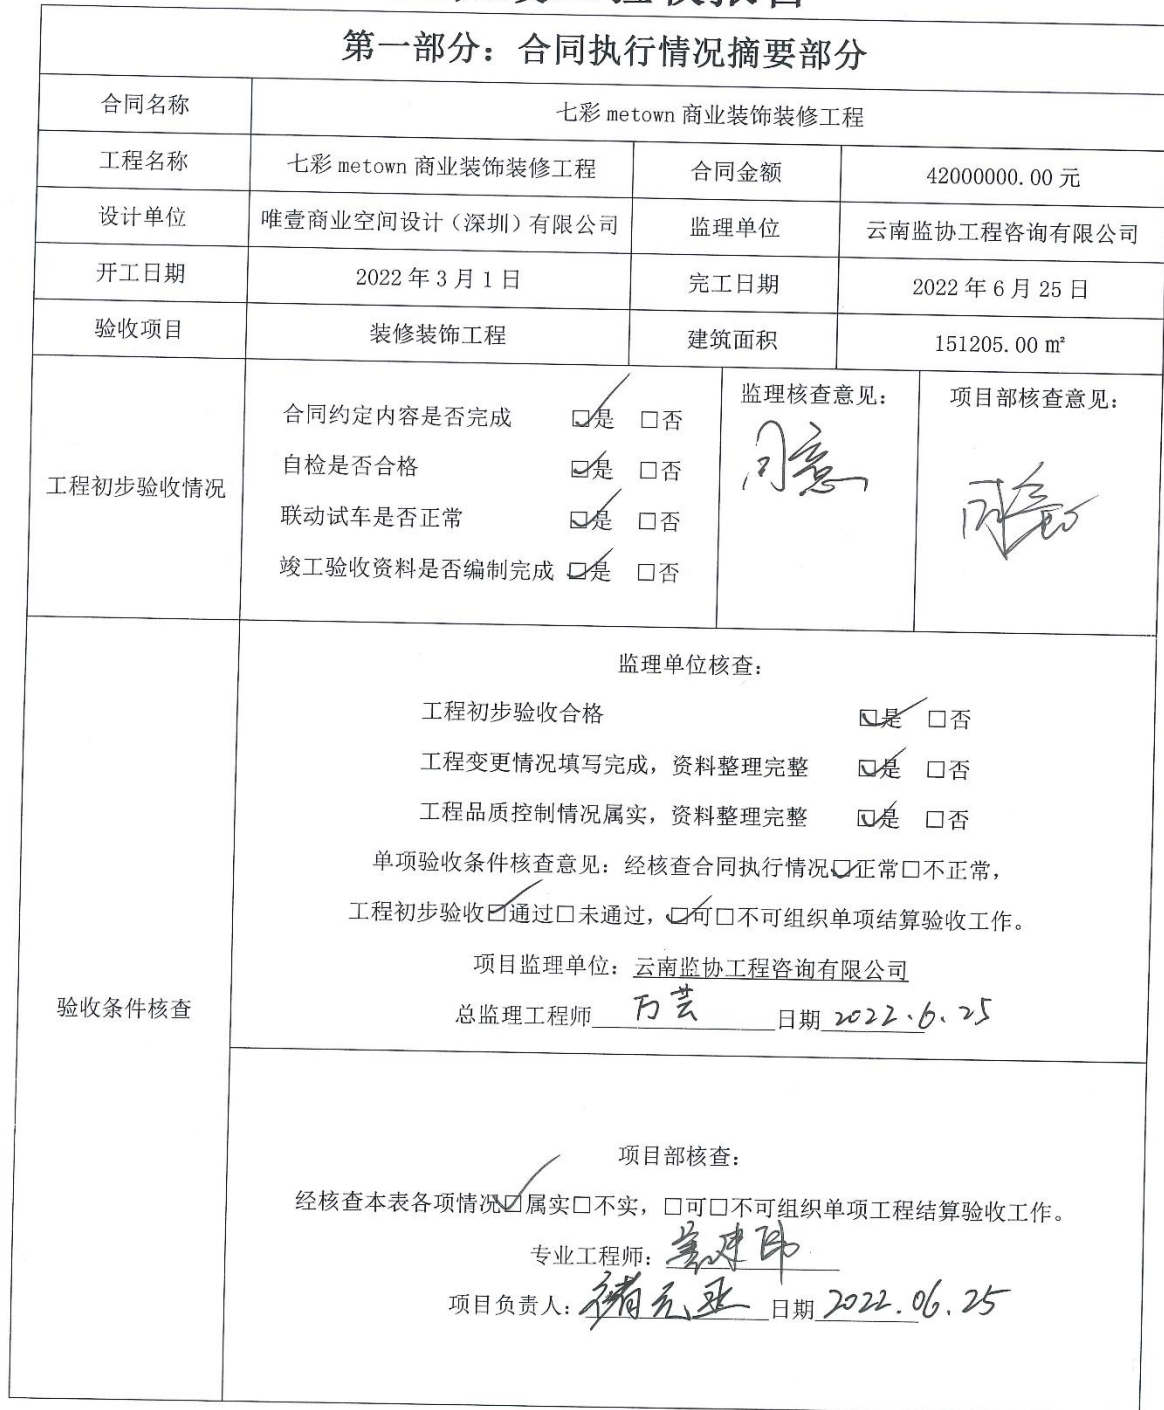 第一部分：合同执行情况摘要部分
合同名称 七彩 metown 商业装饰装修工程
工程名称 七彩 metown 商业装饰装修工程 合同金额 42000000.00 元
设计单位 唯壹商业空间设计（深圳）有限公司 监理单位 云南监协工程咨询有限公司
开工日期 2022 年 3 月 1 日 完工日期 2022 年 6 月 25 日
验收项目 装修装饰工程 建筑面积 151205.00 ㎡
工程初步验收情况
合同约定内容是否完成 ☑是 □否
自检是否合格 ☑是 □否
联动试车是否正常 ☑是 □否
竣工验收资料是否编制完成 ☑是 □否
监理核查意见：
同意
项目部核查意见：
同意
验收条件核查
监理单位核查：
工程初步验收合格 ☑是 □否
工程变更情况填写完成，资料整理完整 ☑是 □否
工程品质控制情况属实，资料整理完整 ☑是 □否
单项验收条件核查意见：经核查合同执行情况☑正常□不正常，
工程初步验收☑通过□未通过，☑可□不可组织单项结算验收工作。
项目监理单位：云南监协工程咨询有限公司
总监理工程师 万芸 日期 2022.6.25
项目部核查：
经核查本表各项情况☑属实□不实，□可□不可组织单项工程结算验收工作。
专业工程师：
项目负责人： 日期 2022.06.25